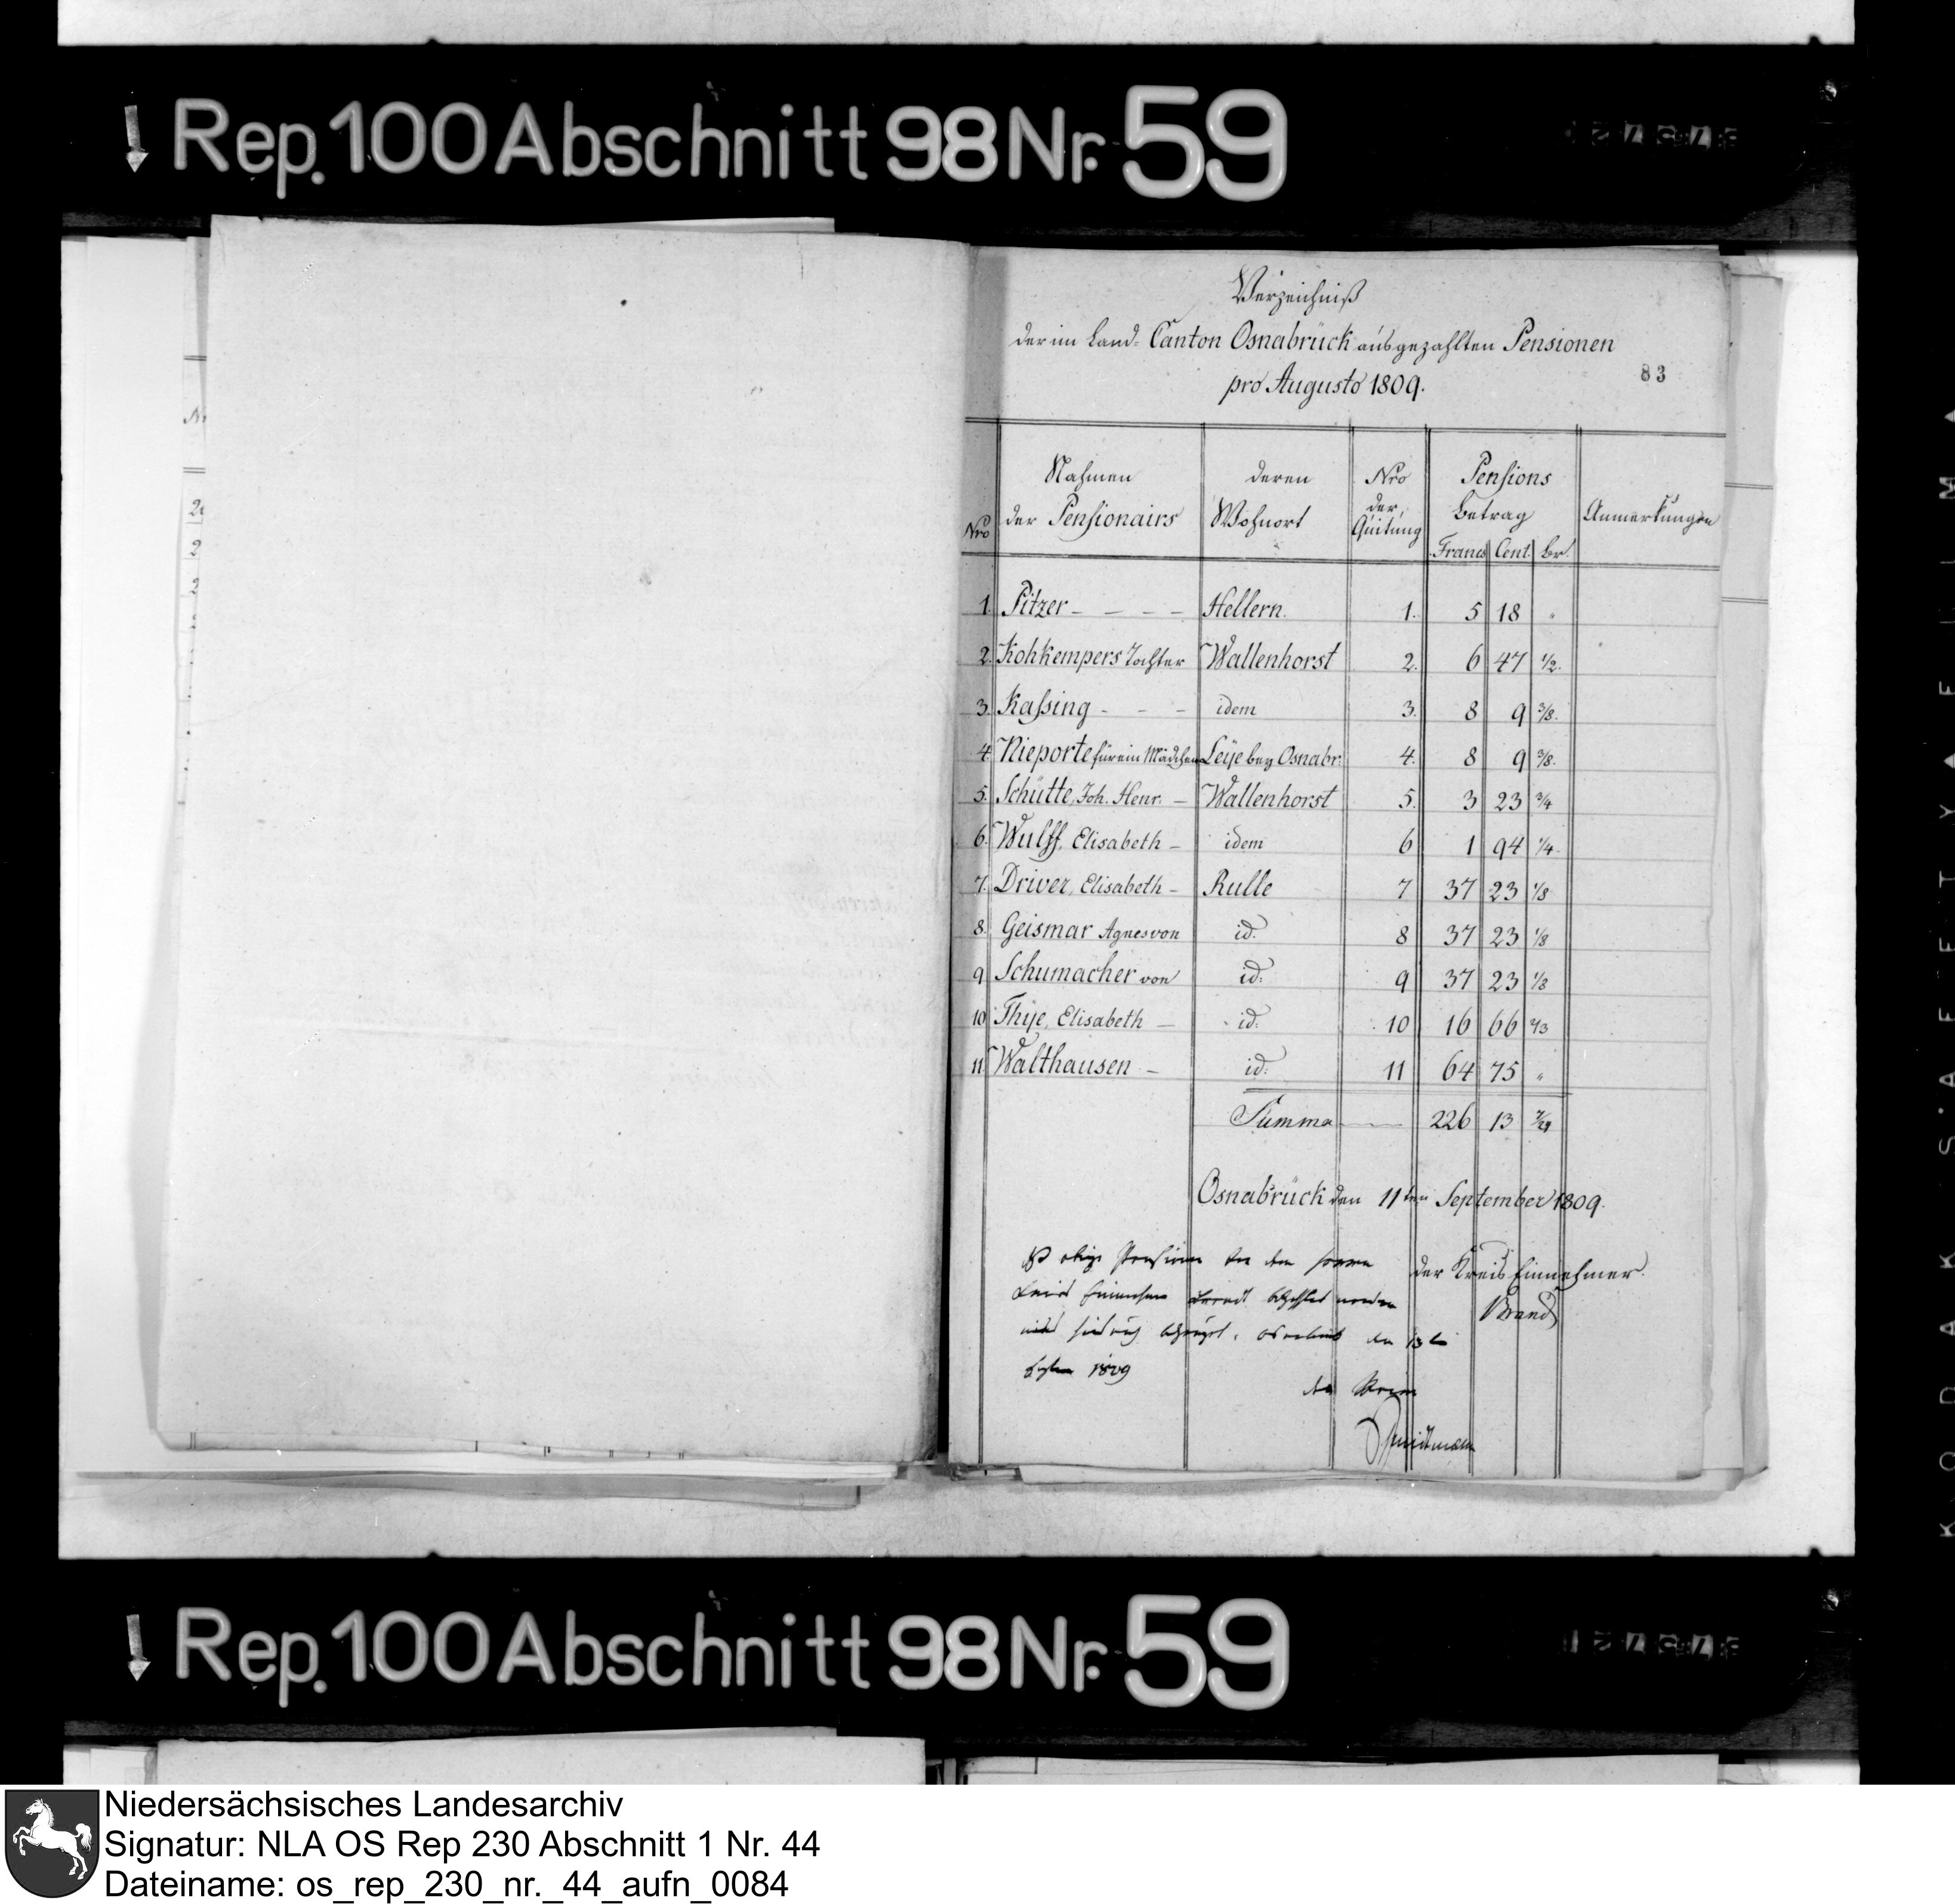 Rep. 100 Abschnitt 98 Nr. 59
Verzeichniß
der im Land- Canton Osnabrück ausgezahlten Pensionen
pro Augusto 1809.
83
Nro
Nahmen der Pensionairs
deren Wohnort
Nro der Quitung
Pensions betrag
Francs Cent. br.
Anmerkungen
1. Pitzer - - - - Hellern. 1. 5 18 "
2. Kohkempers Tochter Wallenhorst 2. 6 47 1/2.
3. Kaßing - - - idem 3. 8 9 3/8.
4. Nieporte für ein Mädchen Leye bey Osnabr. 4. 8 9 3/8.
5. Schütte, Joh. Henr. - Wallenhorst 5. 3 23 3/4
6. Wulff, Elisabeth - idem 6 1 94 1/4
7. Driver, Elisabeth - Rulle 7 37 23 1/8
8. Geismar Agnes von id. 8 37 23 1/8
9 Schumacher von id: 9 37 23 1/8
10 Thye, Elisabeth - id: 10 16 66 2/3
11 Walthausen - id: 11 64 75 "
Summa 226 13 7/24
Osnabrück den 11ten September 1809.
der Kreis Einnehmer.
Brand
obige Pensionen von dem
Einnehmer bezahlt worden
wird hiedurch bezeugt. Osnabrück den 13t
1809
der Maire
Rep. 100 Abschnitt 98 Nr. 59
KODAK SAFETY FILM
Niedersächsisches Landesarchiv
Signatur: NLA OS Rep 230 Abschnitt 1 Nr. 44
Dateiname: os_rep_230_nr._44_aufn_0084